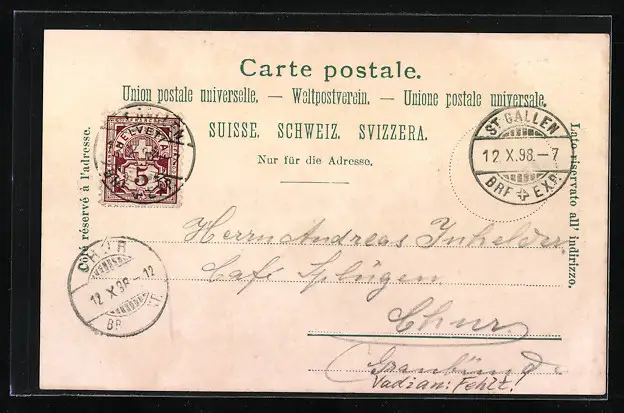 Carte postale.
Union postale universelle. — Weltpostverein. — Unione postale universale.
SUISSE. SCHWEIZ. SVIZZERA.
Nur für die Adresse.
Côté réservé à l'adresse.
Lato riservato all' indirizzo.
HELVETIA
5
ST. GALLEN
12 X.98.–7
BRF EXP.
Herrn Andreas Inhelder
Café Splügen.
Chur
Graubünd
Vadian: Fehlt!
CHUR
12 X 98 –12